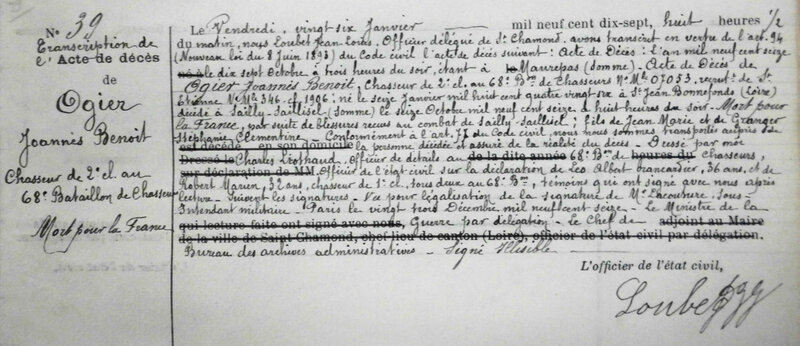 N° 39
Transcription de
l'Acte de décès
de
Ogier
Joannès Benoit
Chasseur de 2e cl. au
68e Bataillon de Chasseurs
Mort pour la France
Le Vendredi, vingt six Janvier mil neuf cent dix-sept, huit heures 1/2
du matin, nous Loubet Jean Louis, Officier délégué de St Chamond, avons transcrit en vertu de l'art. 94
(Nouveau loi du 8 Juin 1893) du Code civil l'acte de décès suivant : Acte de Décès : L'an mil neuf cent seize
né à le dix sept Octobre à trois heures du soir, étant à le Maurepas (Somme) - Acte de Décès de
Ogier Joannès Benoit, Chasseur de 2e cl. au 68e Bon de Chasseurs N° Mle 07053, recrutt de St
Etienne N° Mle 346. cl. 1906; né le seize Janvier mil huit cent quatre vingt six à St Jean Bonnefonds (Loire)
décédé à Sailly-Saillisel (Somme) le seize Octobre mil neuf cent seize, à huit heures du soir - Mort pour
la France, par suite de blessures reçues au combat de Sailly-Saillisel; fils de Jean Marie et de Granger
Stéphanie Clémentine. - Conformément à l'art. 77 du Code civil, nous nous sommes transportés auprès de
est décédé en son domicile la personne décédée et assuré de la réalité du décès - Dressé par moi
Dressé le Charles Leothaud, Officier de détails au de la dite année 68e Bon de heures du Chasseurs,
sur déclaration de MM. Officier de l'état civil sur la déclaration de Leo Albert brancardier, 36 ans, et de
Robert Marien, 32 ans, chasseur de 1e cl., tous deux au 68e Bon, témoins qui ont signé avec nous après
lecture - Suivent les signatures - Vu pour légalisation de la signature de Mr Lacouture. Sous-
Intendant militaire - Paris le vingt trois Décembre mil neuf cent seize - Le Ministre de la
qui lecture faite ont signé avec nous, Guerre par délégation - Le Chef de adjoint au Maire
de la ville de Saint Chamond, chef-lieu de canton (Loire), officier de l'état civil par délégation.
Bureau des archives administratives - Signé Illisible
L'officier de l'état civil,
Loubet